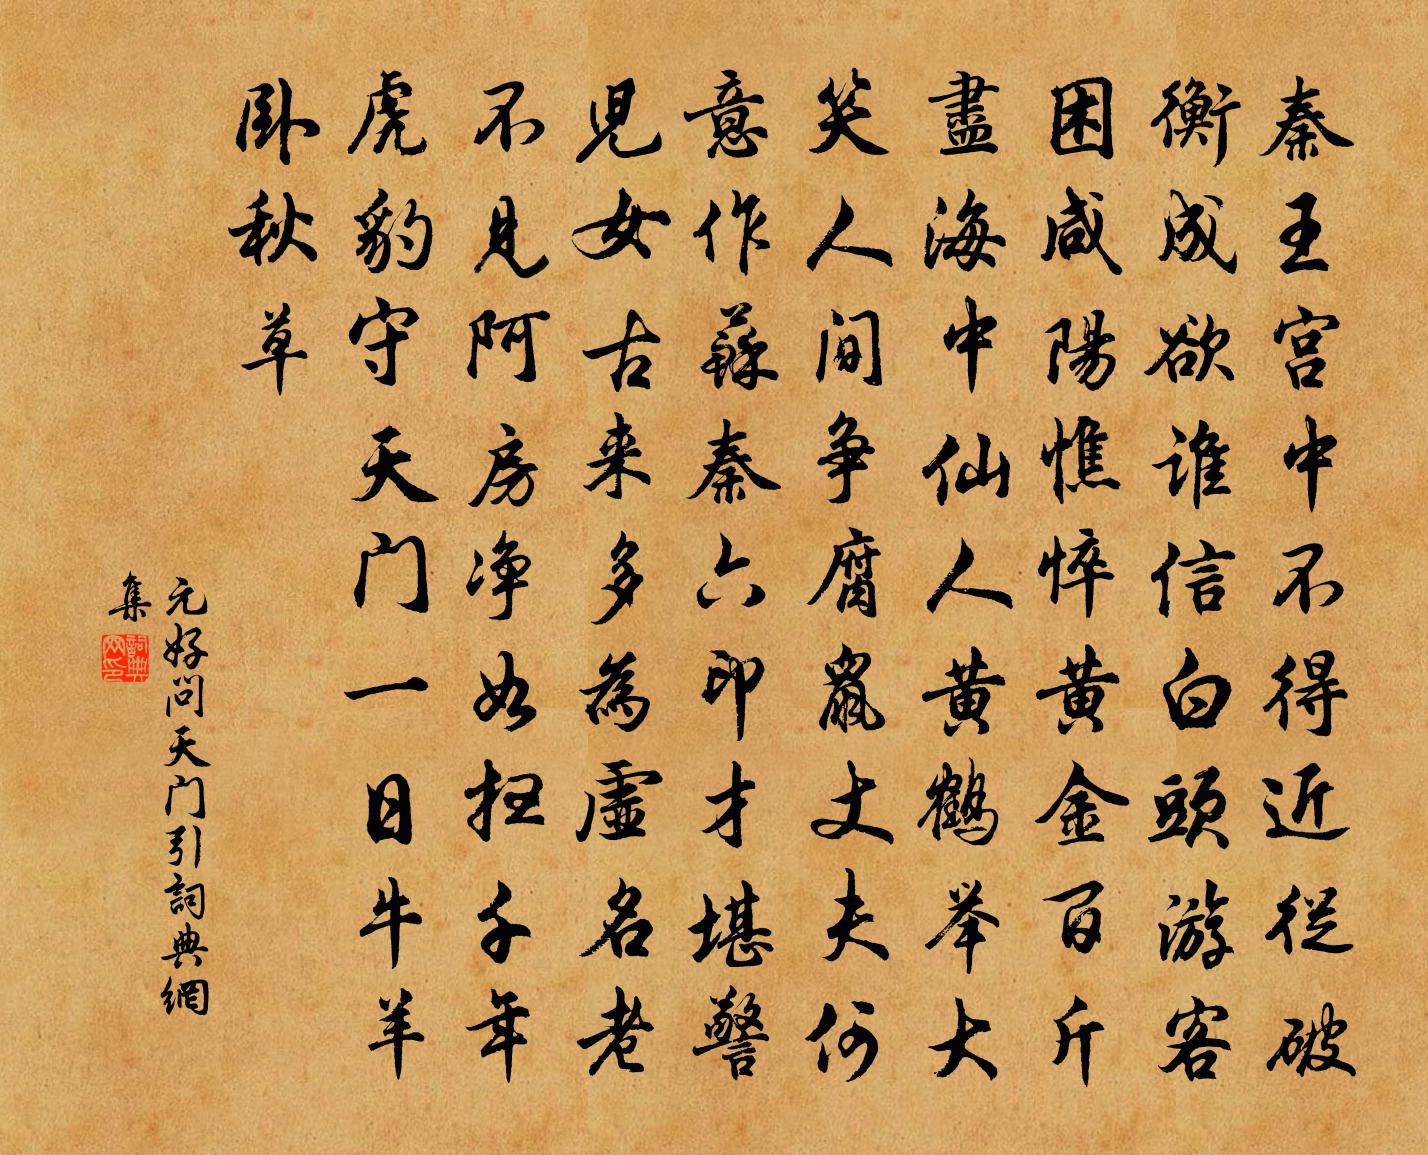 秦王宫中不得近從破
衡成欲誰信白頭游客
困咸陽憔悴黄金百斤
盡海中仙人黄鶴举大
笑人间争腐鼠丈夫何
意作蘇秦六印才堪警
児女古来多為虚名老
不見阿房净如扫千年
虎豹守天门一日牛羊
卧秋草
元好问天门引詞典網
集
詞典網印